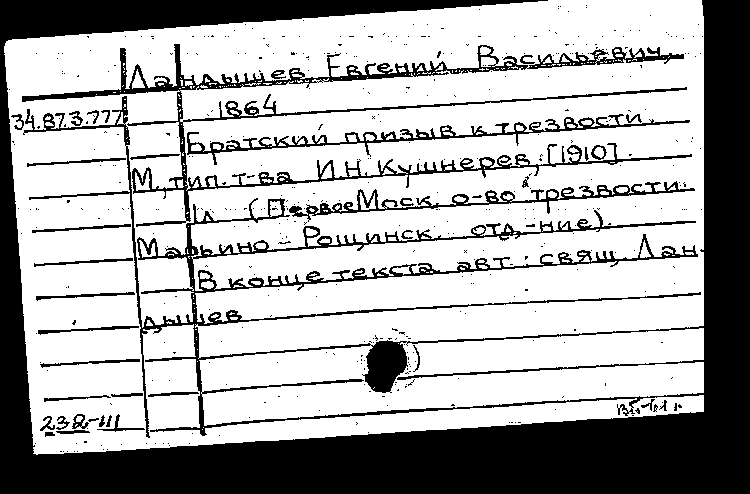 Ландышев, Евгений Васильевич,
34.87.3.777 1864
Братский призыв к трезвости.
М., тип. т-ва И.Н. Кушнерев, [1910]
1л (Первое Моск. о-во трезвости.
Марьино-Рощинск. отд-ние).
В конце текста авт.: свящ. Лан-
дышев
232-III